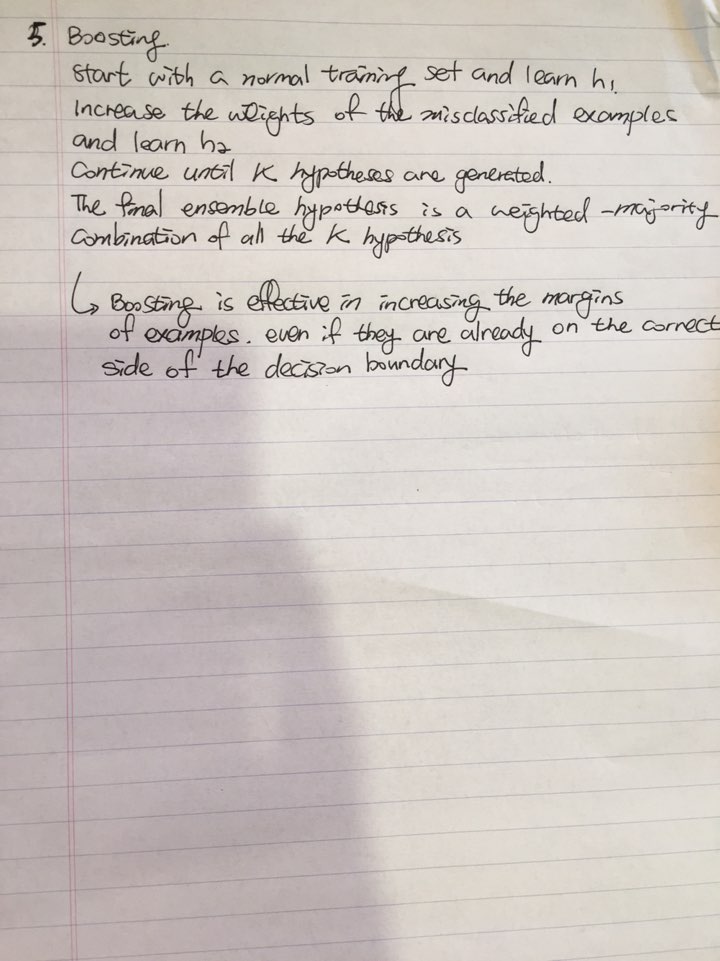 5. Boosting.
Start with a normal training set and learn h₁
Increase the weights of the misclassified examples
and learn h₂
Continue until K hypotheses are generated.
The final ensemble hypothesis is a weighted -majority
Combination of all the K hypothesis
↳ Boosting is effective in increasing the margins
of examples. even if they are already on the correct
side of the decision boundary